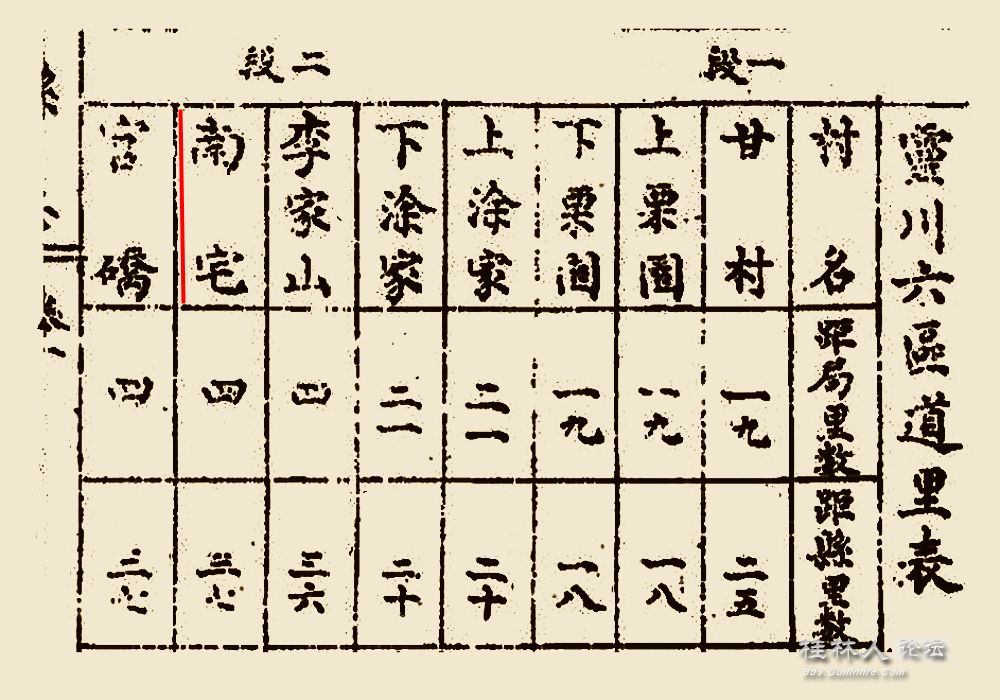 靈川六區道里表
一段
村名 距局里數 距縣里數
甘村 一九 二五
上栗圖 一九 一八
下栗 一九 一八
二段
上涂家 二一 二十
下涂家 二一 二十
李家山 四 三六
南宅 四 三六
礄 四 三六
桂林人论坛
Bbs.Guilinlife.Com